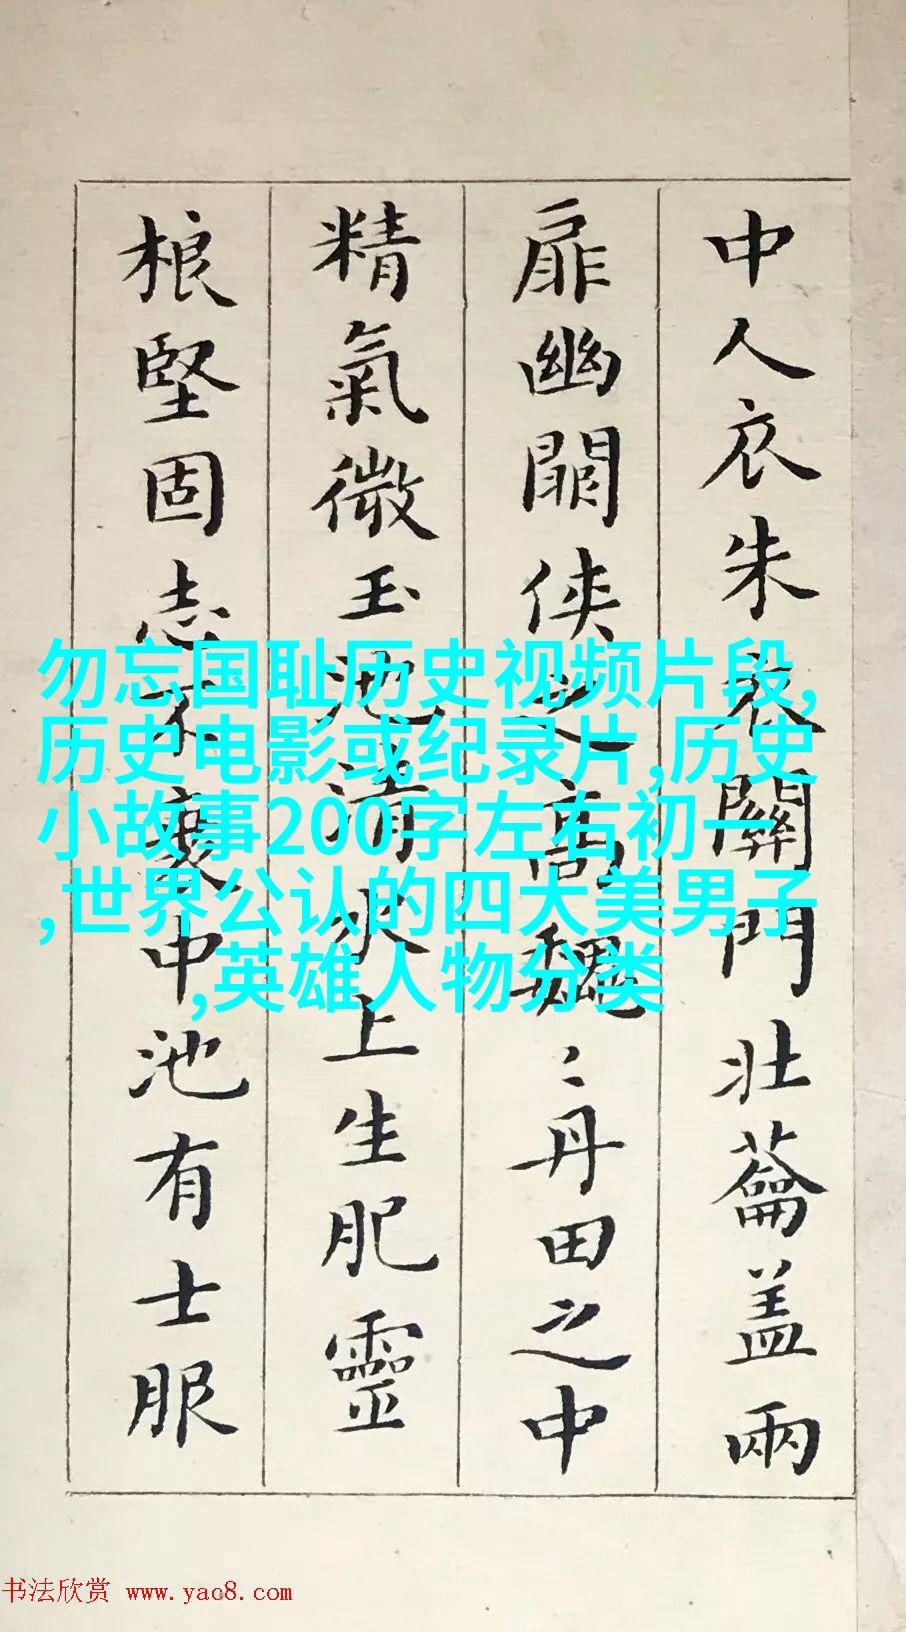 中人衣朱衣關門壯蘥盖兩
扉幽閞侠之高魏〻丹田之中
精氣微玉池清水上生肥靈
根堅固志不衰中池有士服
勿忘国耻历史视频片段,
历史电影或纪录片,历史
小故事200字左右初一
,世界公认的四大美男子
,英雄人物分类
书法欣赏 www.yac8.com